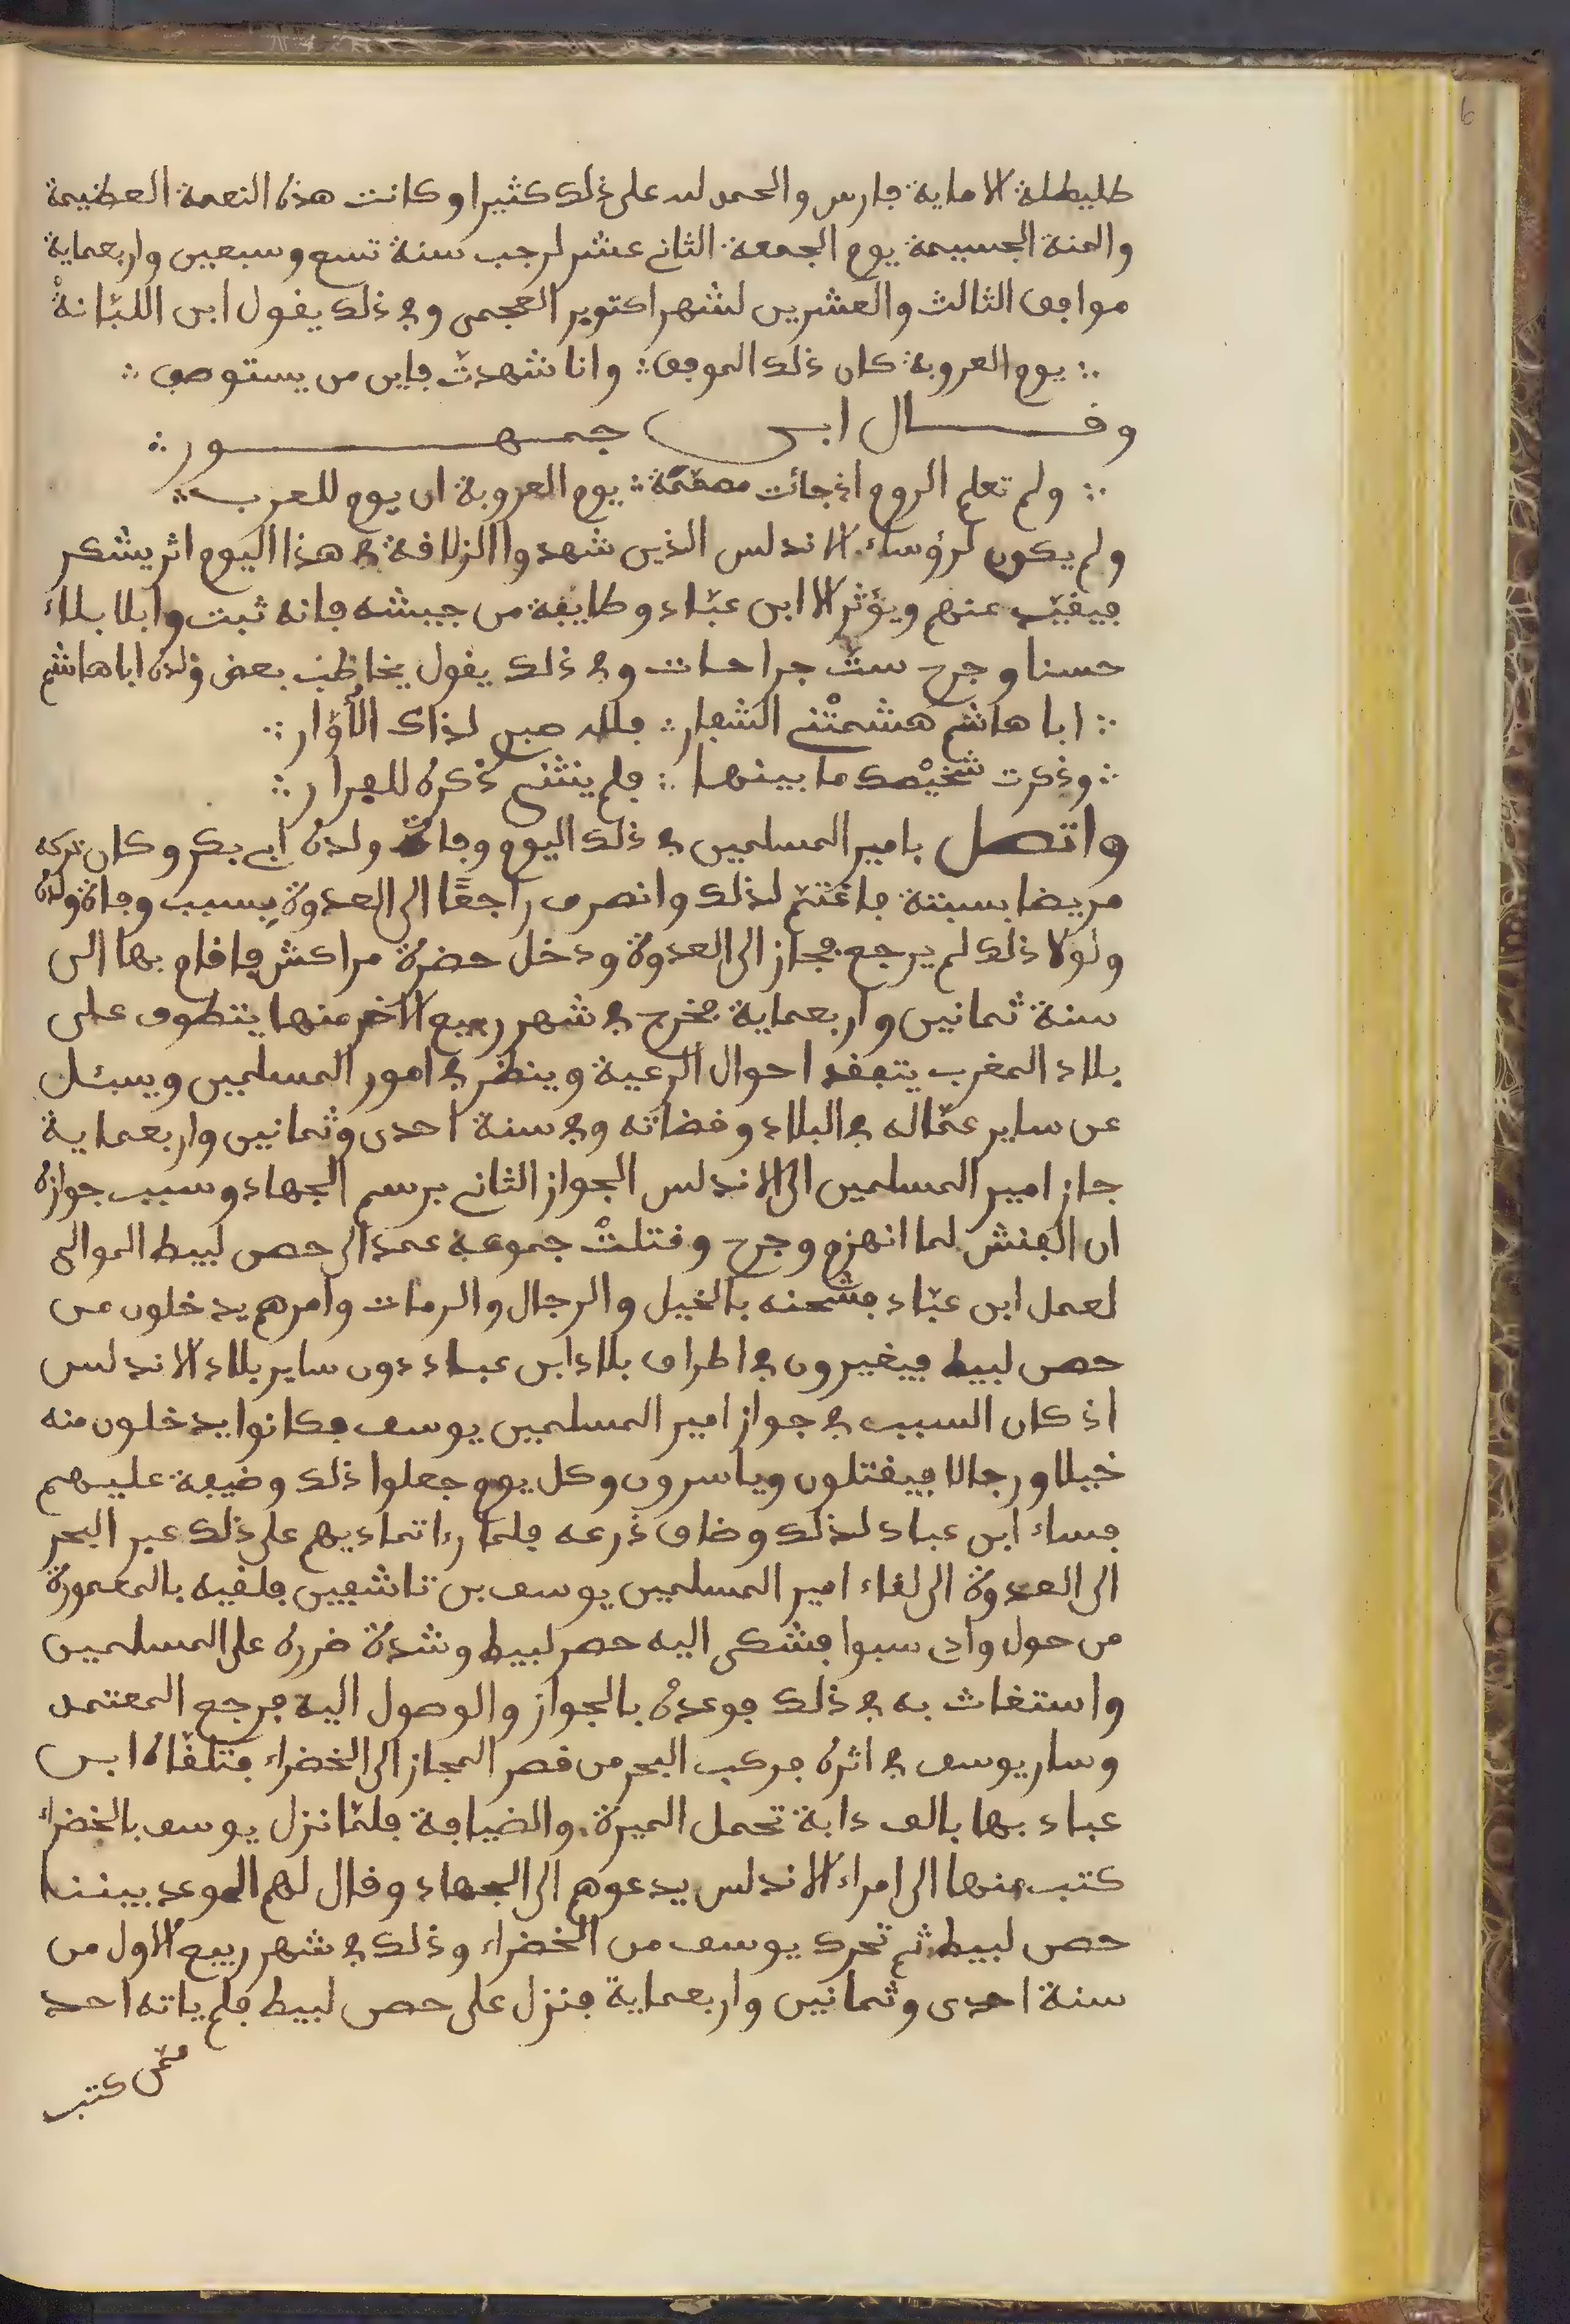 طليطلة الا ماية فارس والحمد لله على ذلك كثيرا وكانت هذه النعمة العظيمة
والمنة الجسيمة يوم الجمعة الثاني عشر لرجب سنة تسع وسبعين واربعماية
موافق الثالث والعشرين لشهر اكتوبر العجمي وفي ذلك يقول ابن اللبّانةْ
∴ يوم العروبة كان ذلك الموقف ∴ وانا شهدتّ فاين من يستوصف ∴
وقال ابي جمهور ∴
∴ ولم تعلم الروم اذ جائت مصمّمة ∴ يوم العروبة ان يوم للعرب ∴
ولم يكون لرؤساء الاندلس الذين شهدوا الزلاقة في هذا اليوم اثر يشكر
فيقيّد عنهم ويؤثر الا ابن عبّاد وطايفة من جيشه فانه ثبت وابلا بلاء
حسنا وجرح ستّ جراحات وفي ذلك يقول يخاطب بعض ولده ابا هاشم
∴ ابا هاشم هشمتْني الشفار ∴ فلله صبر لذاك الأُوّار ∴
∴ وذكرت شخيْصك ما بينها ∴ فلم ينثني ذكره للفرار ∴
واتصل بامير المسلمين في ذلك اليوم وفات ولده ابي بكر وكان تركه
مريضا بسبتة فاغتمّ لذلك وانصرف راجعًا الى العدوة بسبب وفاة ولده
ولولا ذلك لم يرجع فجاز الى العدوة ودخل حضرة مراكش فاقام بها الى
سنة ثمانين واربعماية فخرج في شهر ربيع الاخر منها يتطوف على
بلاد المغرب يتفقد احوال الرعية وينظر في امور المسلمين ويسئل
عن ساير عمّاله في البلاد وقضاته وفي سنة احدى وثمانين واربعماية
جاز امير المسلمين الى الاندلس الجواز الثاني برسم الجهاد وسبب جوازه
ان الفنش لما انهزم وجرح وقتلتْ جموعه عمد الى حصن لبيط الموالي
لعمل ابن عبّاد فشحنه بالخيل والرجال والرمات وامرهم يدخلون من
حصن لبيط فيغيرون في اطراف بلاد ابن عباد دون ساير بلاد الاندلس
اذ كان السبب في جواز امير المسلمين يوسف فكانوا يدخلون منه
خيلا ورجالا فيقتلون وياسرون وكل يوم جعلوا ذلك وضيفة عليهم
فساء ابن عباد لذلك وضاق ذرعه فلمّا رءا تماديهم على ذلك عبر البحر
الى العدوة الى لقاء امير المسلمين يوسف بن تاشفين فلقيه بالمعمورة
من حول وادي سبوا فشكى اليه حصن لبيط وشدة ضرره على المسلمين
واستغاث به في ذلك فوعده بالجواز والوصول اليه فرجع المعتمد
وسار يوسف في اثره فركب البحر من قصر المجاز الى الخضراء فتلقّاه ابن
عباد بها بالف دابة تحمل الميرة والضيافة فلمّا نزل يوسف بالخضراء
كتب منها الى امراء الاندلس يدعوهم الى الجهاد وقال لهم الموعد بيننا
حصن لبيط ثم تحرك يوسف من الخضراء وذلك في شهر ربيع الاول من
سنة احدى وثمانين واربعماية فنزل على حصن لبيط فلم ياته احد
ممّن كتب